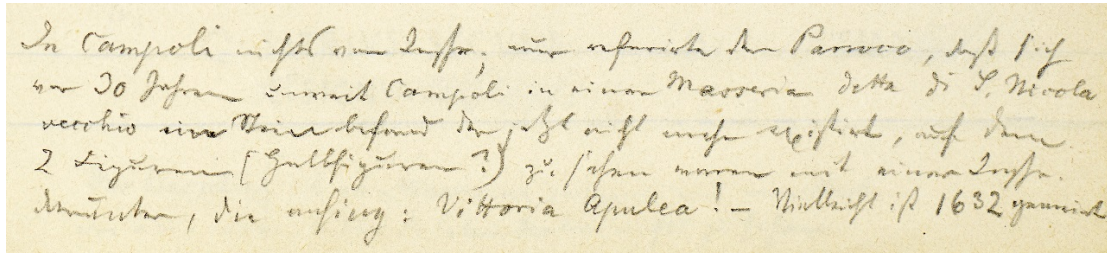 In Campoli nichts von Inschr.; nur referirte der Parroco, daß sich
vor 30 Jahren unweit Campoli in einer Masseria detta di S. Nicola
vecchio ein Stein befand der jetzt nicht mehr existirt, auf dem
2 Figuren (Halbfiguren?) zu sehen waren mit einer Inschr.
darunter, die anfing: Vittoria Apulea! – Vielleicht ist 1632 gemeint